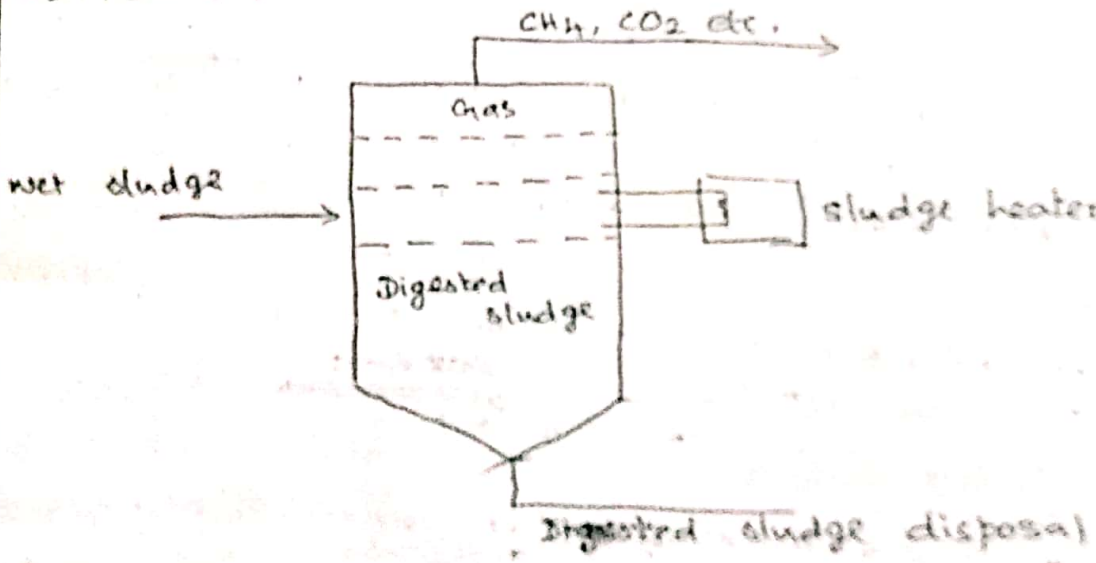 CH4, CO2 etc.
Gas
wet sludge
sludge heater
Digested
sludge
Digested sludge disposal